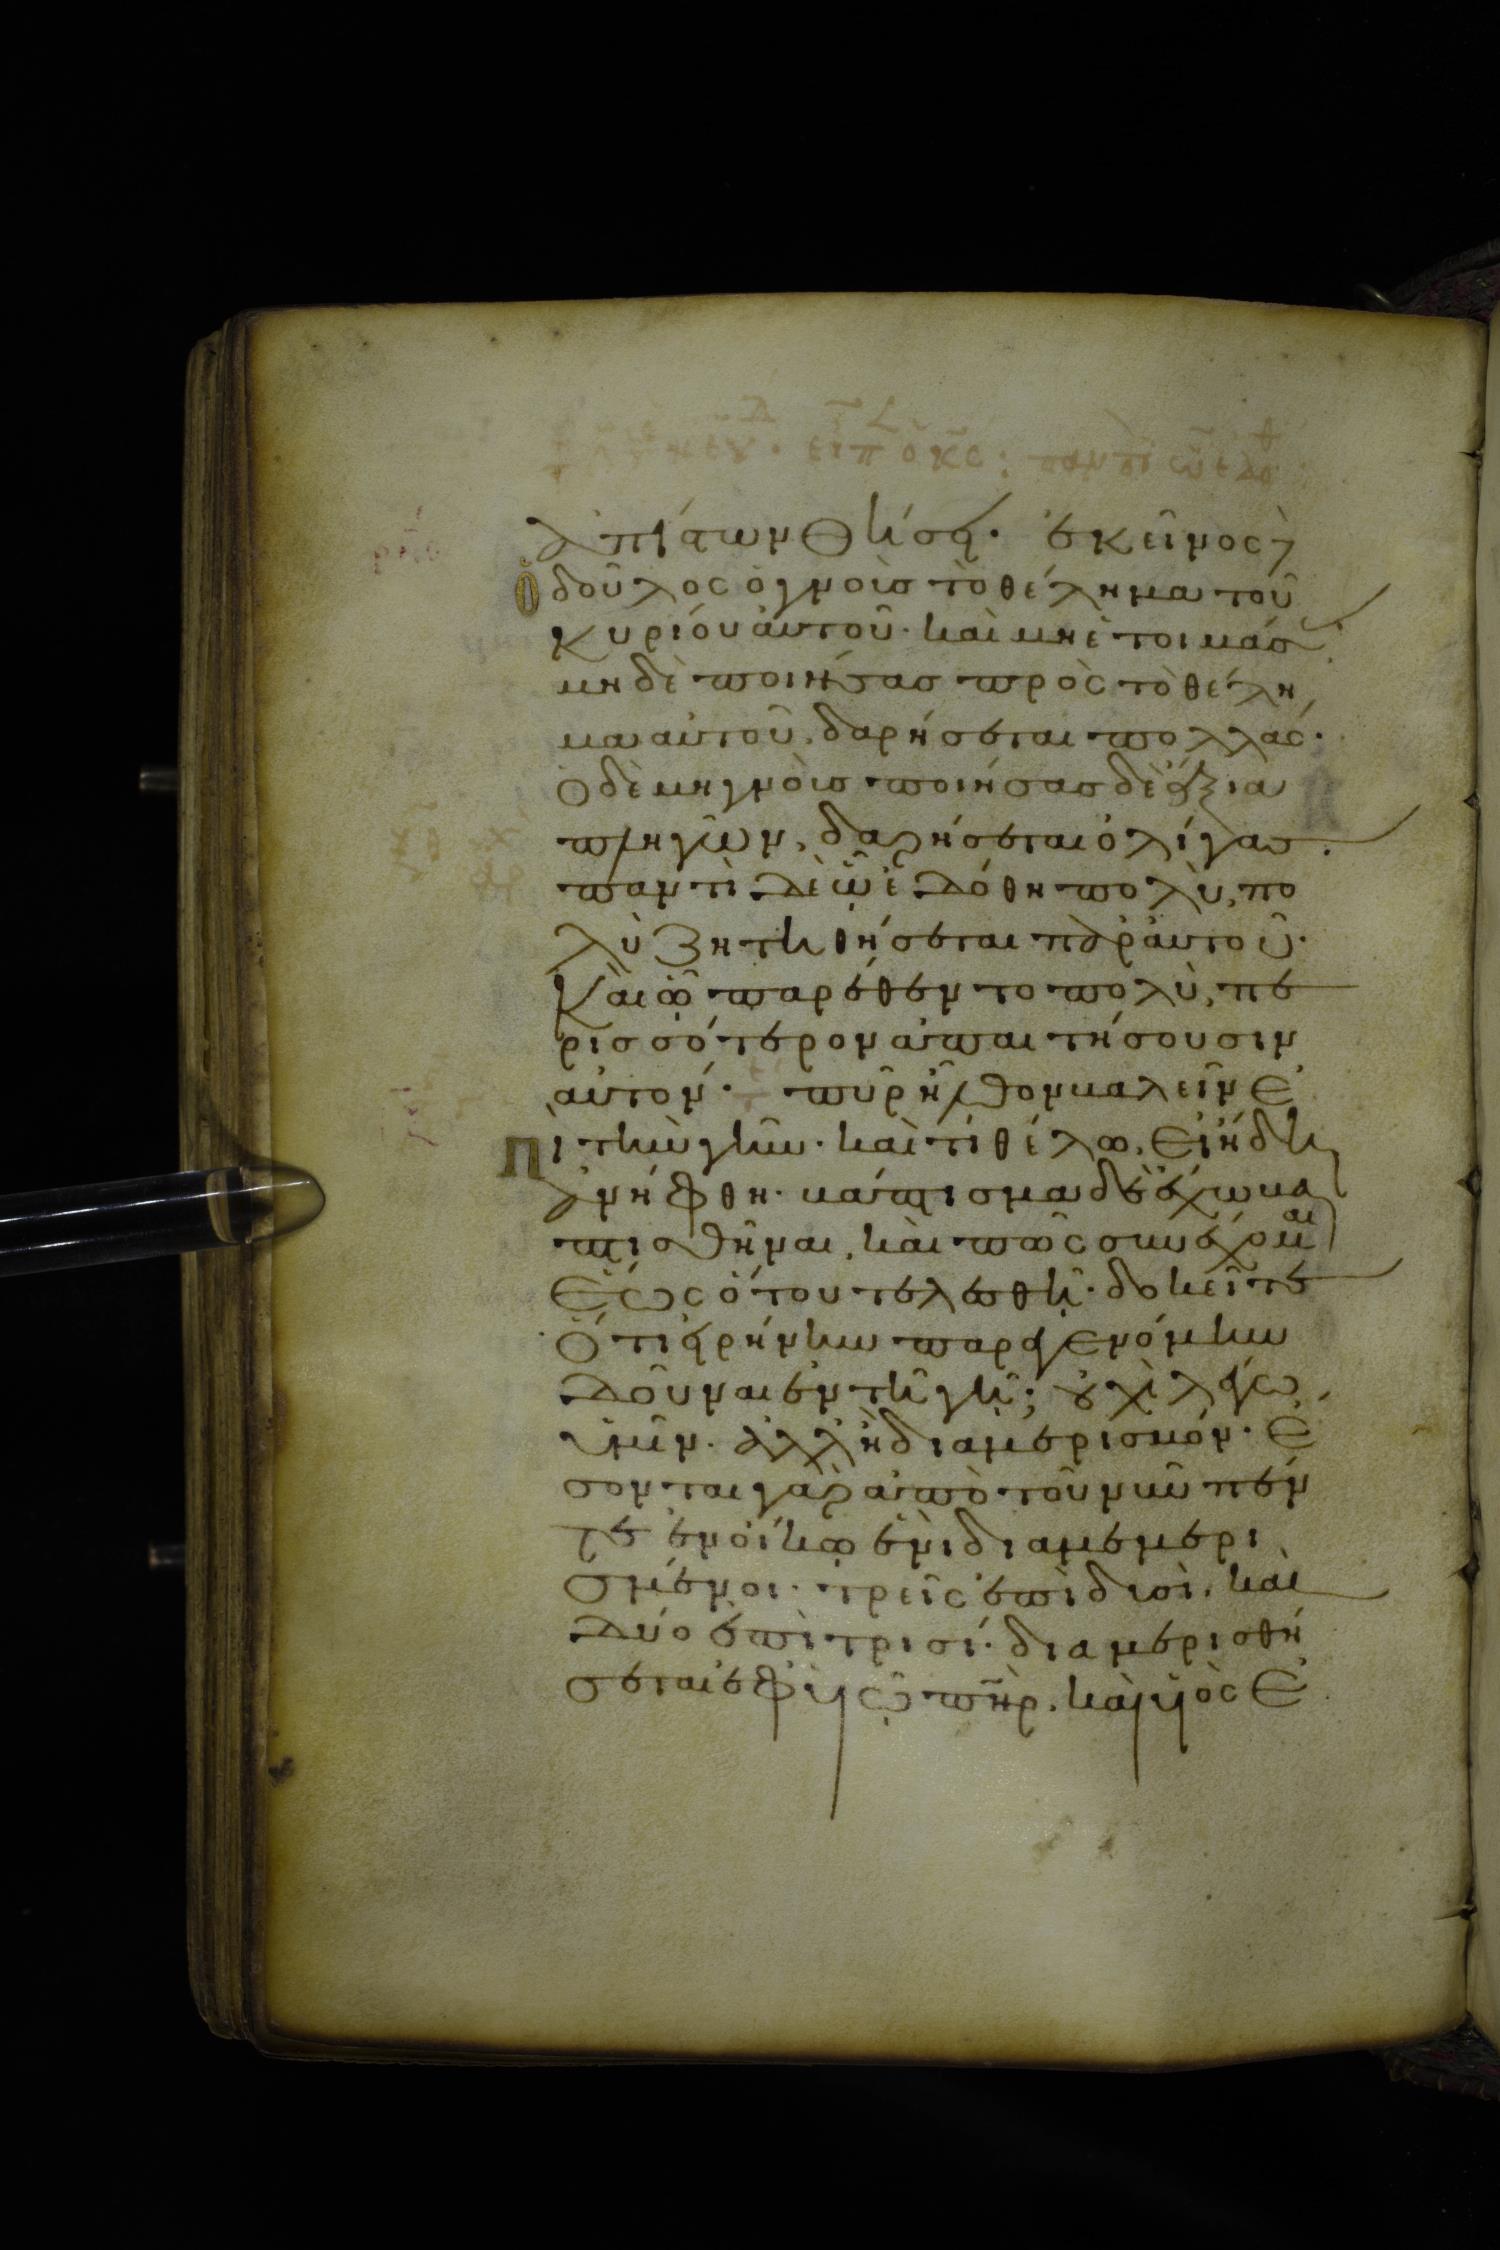 ἀπίστων θήσει. ἐκεῖνος
ὁ δοῦλος ὁ γνοὺς τὸ θέλημα τοῦ
κυρίου αὐτοῦ. καὶ μὴ ἑτοιμάσ
μηδὲ ποιήσας πρὸς τὸ θέλη
μα αὐτοῦ, δαρήσεται πολλάς.
ὁ δὲ μὴ γνοὺς ποιήσας δὲ ἄξια
πληγῶν, δαρήσεται ὀλίγας.
παντὶ δὲ ᾧ ἐδόθη πολὺ, πο
λὺ ζητηθήσεται παρ' αὐτοῦ.
Καὶ ᾧ παρέθεντο πολὺ, πε
ρισσότερον ἀπαιτήσουσιν
αὐτόν. πῦρ ἦλθον βαλεῖν ἐ
πὶ τὴν γῆν. καὶ τί θέλω, εἰ ἤδη
ἀνήφθη. βάπτισμα δὲ ἔχω βα
πτισθῆναι, καὶ πῶς συνέχομαι
ἕως ὅτου τελεσθῇ. δοκεῖτε
ὅτι εἰρήνην παρεγενόμην
δοῦναι ἐν τῇ γῇ; οὐχὶ λέγω
ὑμῖν. ἀλλ' ἢ διαμερισμόν. ἔ
σονται γὰρ ἀπὸ τοῦ νῦν πέν
τε ἐν οἴκῳ ἑνὶ διαμεμερι
σμένοι. τρεῖς ἐπὶ δυσὶ, καὶ
δύο ἐπὶ τρισί. διαμερισθή
σεται ἐφ' υἱῷ πηρ. καὶ υἱὸς ἐ